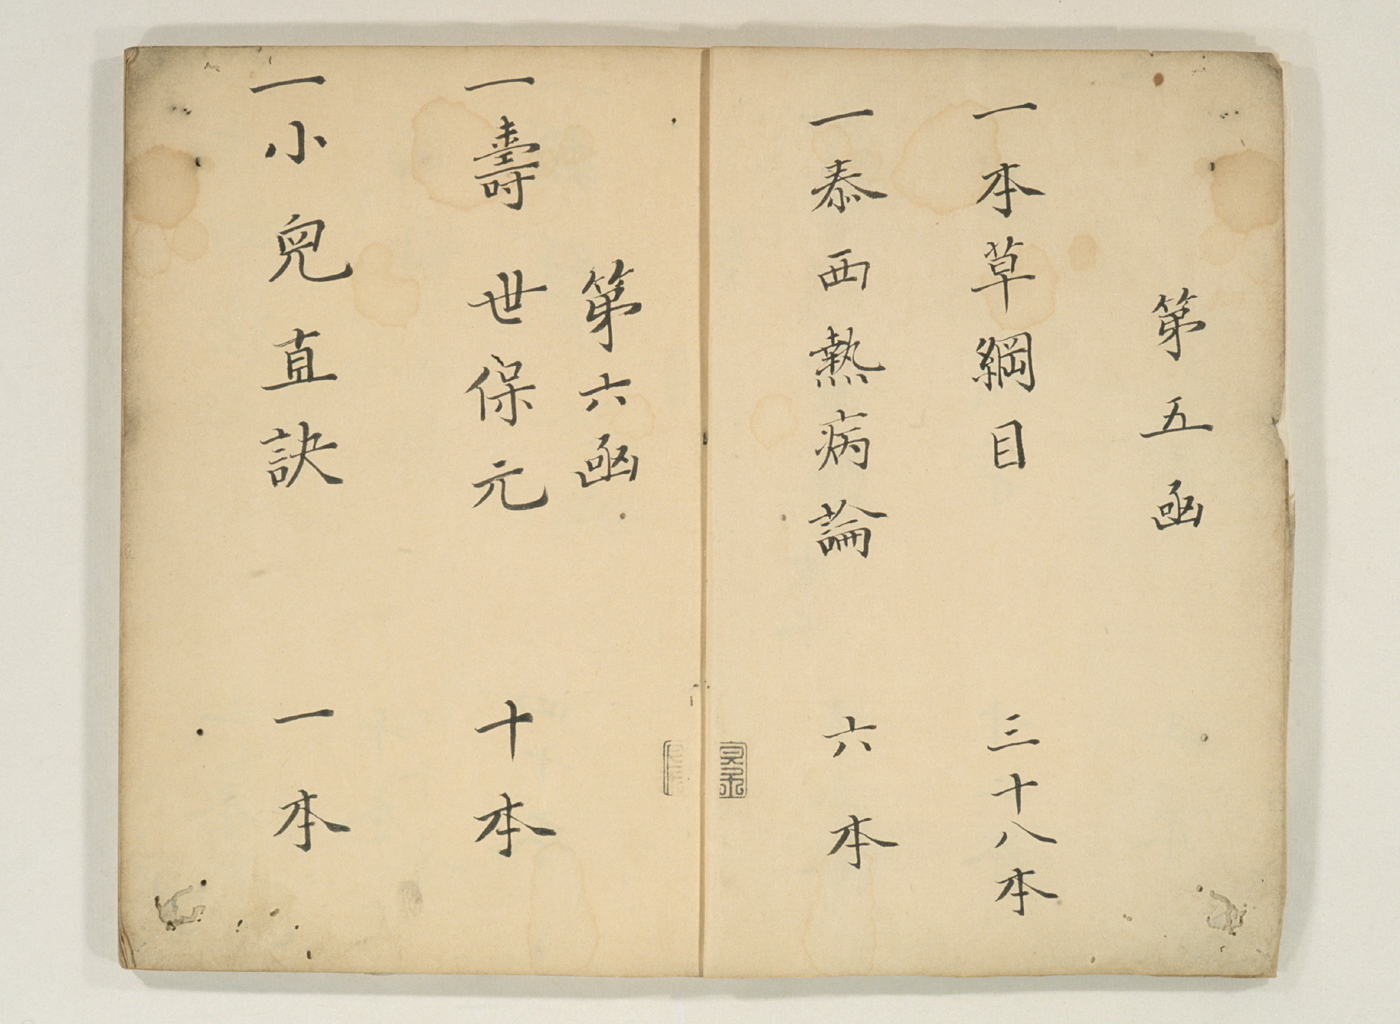 第五函
一本草綱目 三十八本
一泰西熱病論 六本
第六函
一壽世保元 十本
一小兒直訣 一本